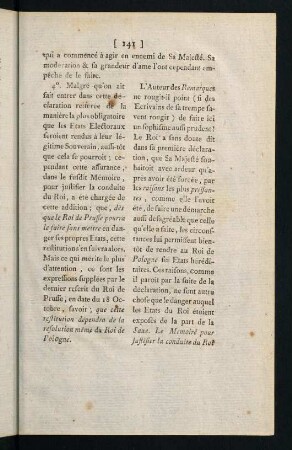 [ 141 ]
qui a commencé à agir en ennemi de Sa Majesté. Sa
moderation & sa grandeur d'ame l'ont cependant em-
pêché de le faire.
4°. Malgré qu'on ait
fait entrer dans cette dé-
claration reiterée de la
manière la plus obligatoire
que les Etats Electoraux
seroient rendus à leur lé-
gitime Souverain, aussi-tôt
que cela se pourroit; ce-
pendant cette assurance,
dans le susdit Mémoire,
pour justifier la conduite
du Roi, a été chargée de
cette addition; que, dès
que le Roi de Prusse pourra
le faire sans mettre en dan-
ger ses propres Etats, cette
restitution s'en suivra alors.
Mais ce qui mérite le plus
d'attention, ce sont les
expressions supplées par le
dernier rescrit du Roi de
Prusse, en date du 18 Oc-
tobre, savoir; que cette
restitution dépendra de la
résolution même du Roi de
Pologne.
L'Auteur des Remarques
ne rougit-il point (si des
Ecrivains de sa trempe sa-
vent rougir) de faire ici
un sophisme aussi prudent?
Le Roi a sans doute dit
dans sa première déclara-
tion, que Sa Majesté sou-
haitoit avec ardeur qu'a-
près avoir été forcée, par
les raisons les plus pressan-
tes, comme elle l'avoit
été, de faire une démarche
aussi désagréable que celle
qu'elle a faite, les circons-
tances lui permissent bien-
tôt de rendre au Roi de
Pologne ses Etats hérédi-
taires. Ces raisons, comme
il paroît par la suite de la
déclaration, ne sont autre
chose que le danger auquel
les Etats du Roi étoient
exposés de la part de la
Saxe. Le Memoire pour
justifier la conduite du Roi